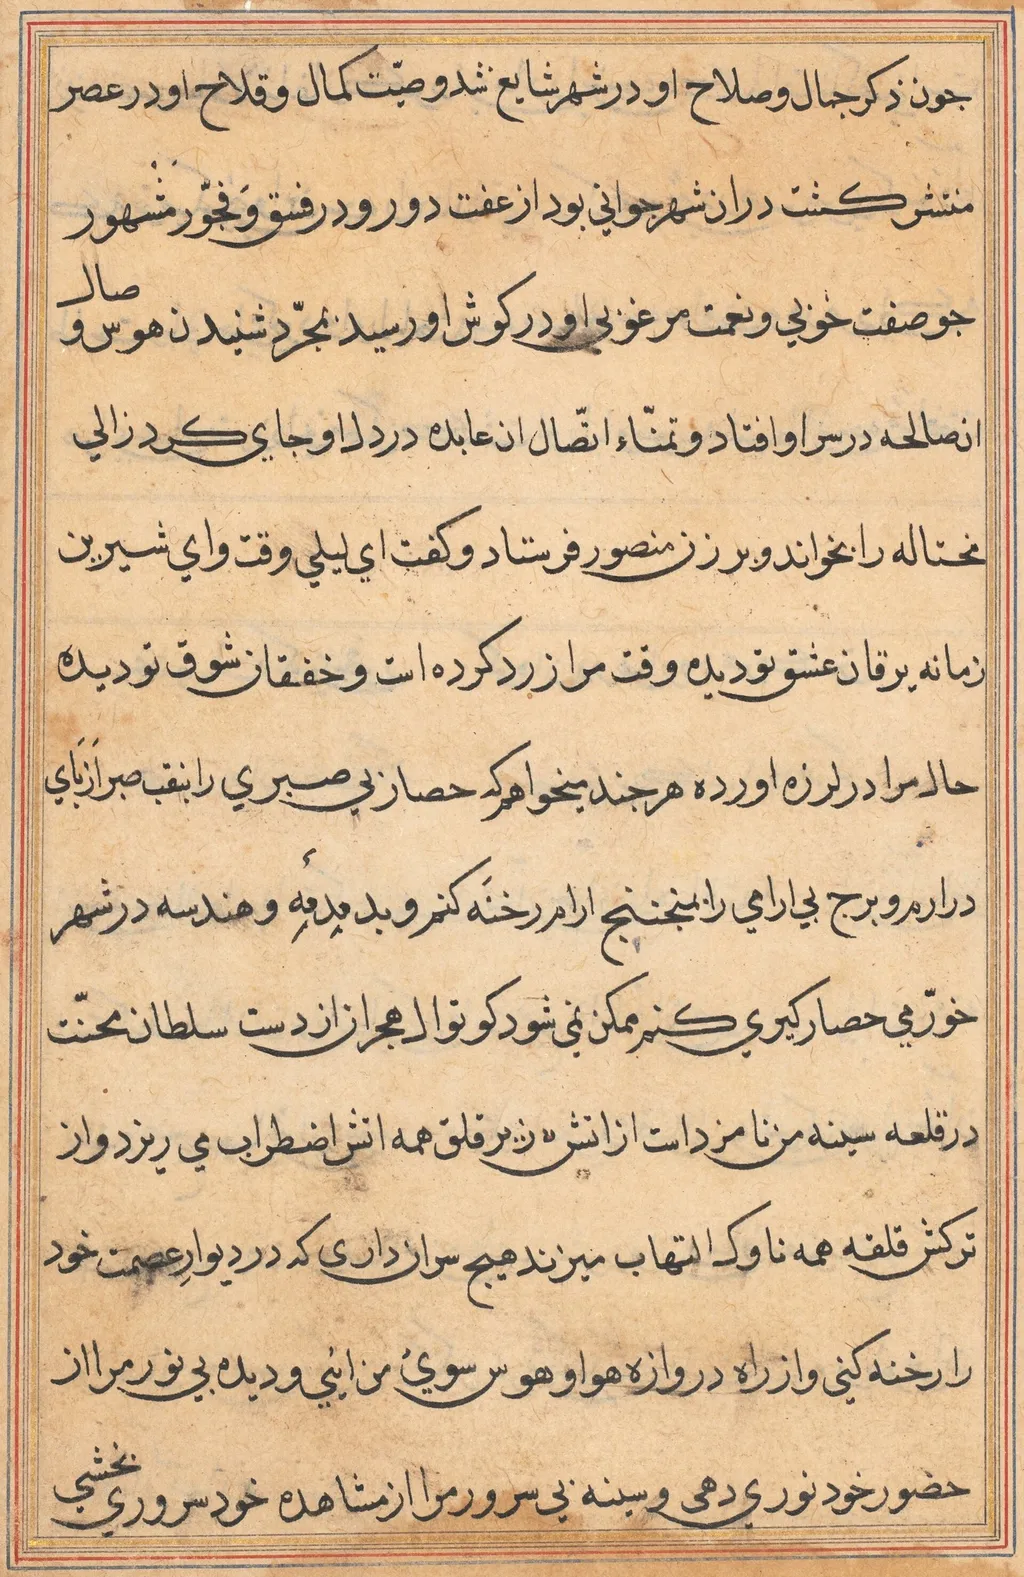 جون ذکر جمال وصلاح او در شهر شایع شد وصیّت کمال وفلاح او در عصر
منتشر کشت در ان شهر جوانی بود از عفت دور و در فسق وَ فجّور مَشْهور
جو صفت خوبي ونعمت مرغوبي او در کوش او رسید بمجرّد شنیدن هوس و صال
ان صالحه در سر او افتاد و تمنّاء اتّصال ان عابده در دل او جاي کرد زالي
محتاله را بخواند و بر زن منصور فرستاد و کفت اي لیلي وقت و اي شیرین
زمانه یرقان عشق تو دیده وقت مرا زرد کرده است و خفقان شوق تو دیده
حال مرا در لرزه اورده هر جند میخواهم که حصار بي صبري را بنقب صبر اَز بَاي
درارم و برج بي ارامي را بمنجنیج ارام رخنَه کنم و بدمدمهِ وهندسه در شهر
خوّرمي حصار کیري کنم ممکن نمي شود کوتوال هجران از دست سلطان محنّت
در قلعه سینه من نامزد است از اتش زیر قلق همه اتش اضطراب مي ریزد و از
ترکش قلقه همه ناوک التهاب میزند هیج سران داری که در دیوارِ عصمت خود
را رخنه کني و از راه دروازه هوا و هوس سويْ من ائيي و دیده بي نور مرا از
حضور خود نوري دهي وسینه بي سرور مرا از مشاهده خود سروري بخشي